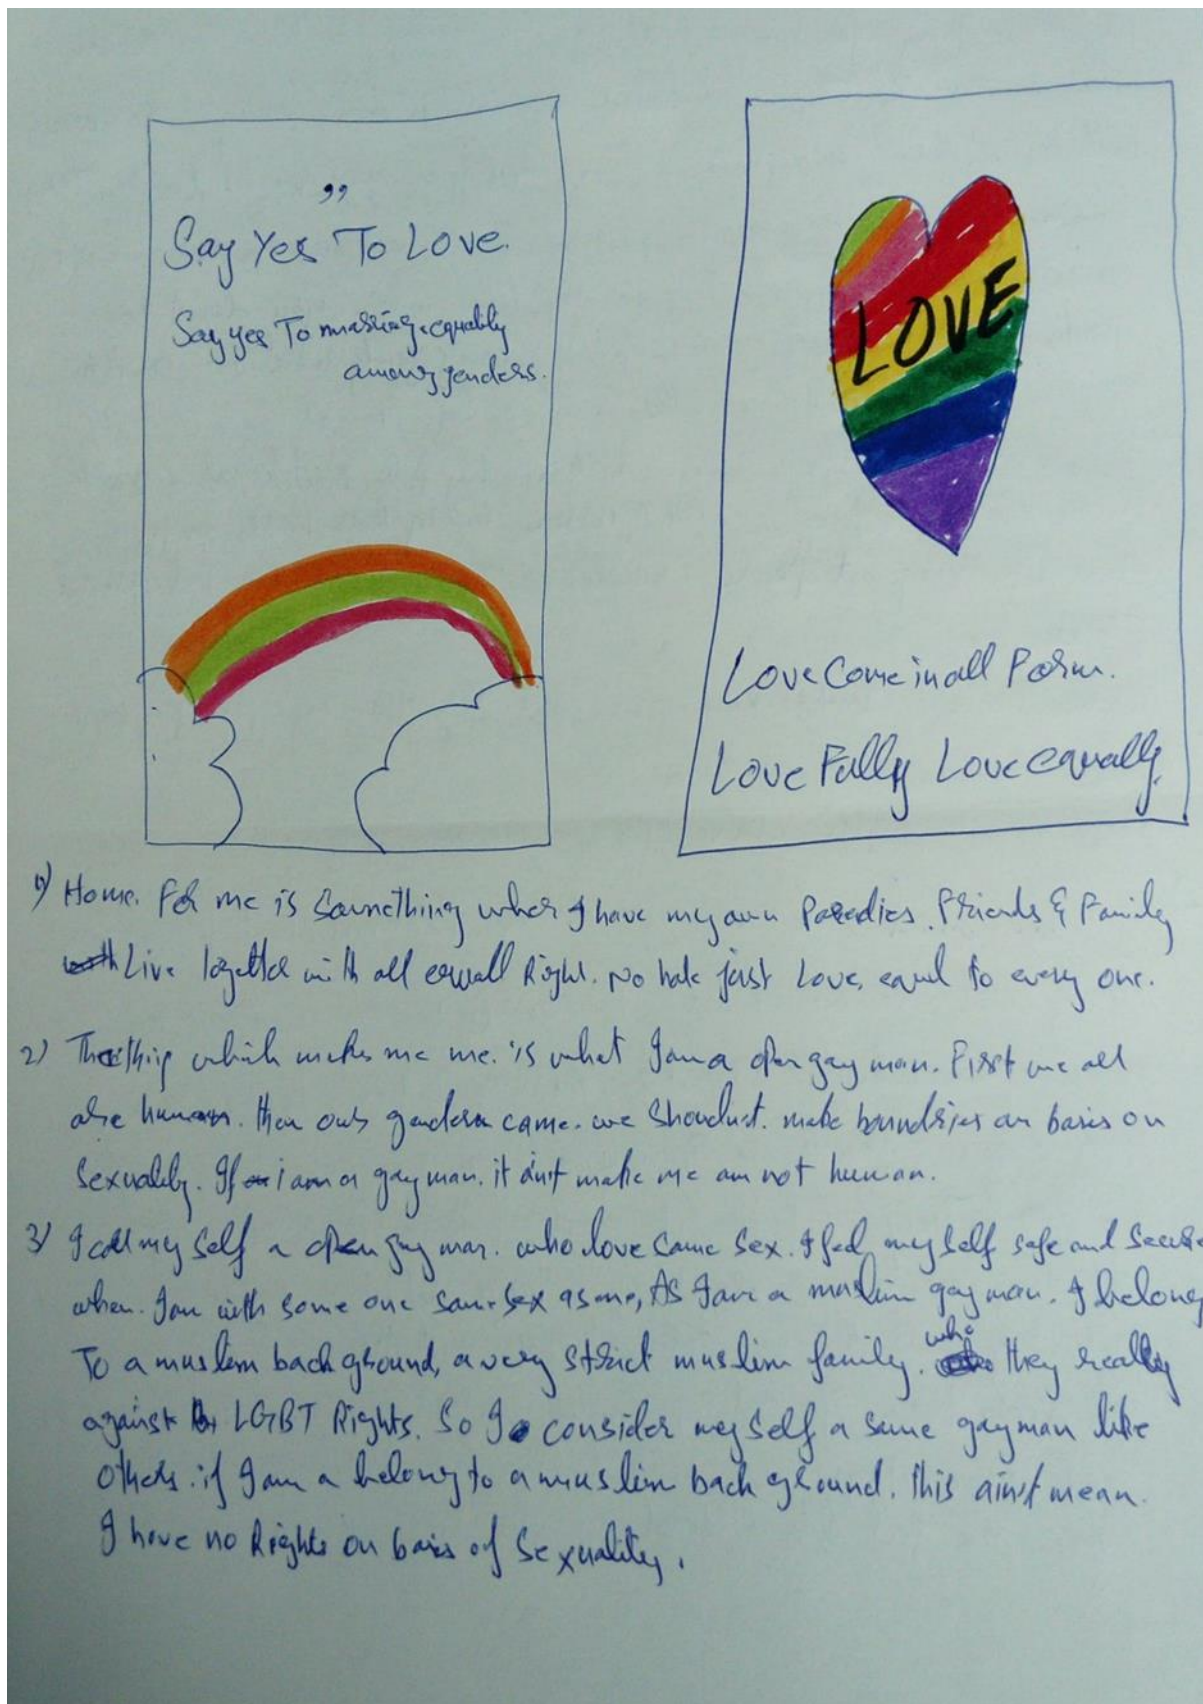 ”
Say Yes To Love.
Say yes To marriage equality
among genders.
LOVE
Love Come in all Form.
Love Fully Love equally.
1) Home. For me is Sounething wher I have my own Paredies. Friends & Family
Live together with all equall Right. No hate just Love, equal to every one.
2) The thing which makes me me. is what I am a open gay man. First we all
are human. then our gender came. we Shoudnt. make boundries on basis on
Sexuality. If i am a gay man. it ain't make me am not human.
3) I call my self a open gay man. who love same sex. I feel my self safe and Secure
when. I am with some one same sex as me, AS I am a muslim gay man. I belong
To a muslem back ground, a very strict muslim family. who they really
against LGBT Rights. So I consider my self a same gay man like
others. if I am a belong to a muslim back ground. this ain't mean.
I have no Rights on basis of Sexuality.